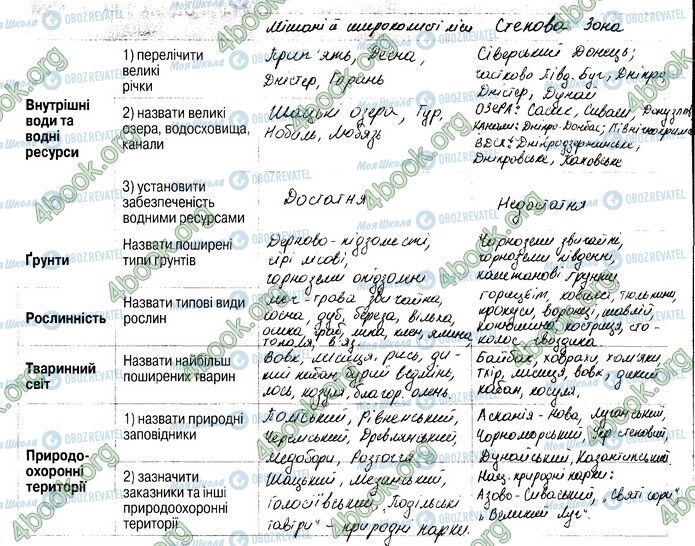 Мішані й широколисті ліси Степова Зона
Внутрішні води та водні ресурси
1) перелічити великі річки
Прип'ять, Десна, Дністер, Горинь
Сіверський Донець; частково Півд. Буг, Дніпро, Дністер, Дунай
2) назвати великі озера, водосховища, канали
Шацькі озера, Тур, Нобель, Любязь
ОЗЕРА: Сасик, Сиваш, Донузлав
Канали: Дніпро-Донбас,
ВДСХ: Дніпродзержинське, Дніпровське, Каховське
3) установити забезпеченість водними ресурсами
Достатня
Недостатня
Ґрунти
Назвати поширені типи ґрунтів
Дерново-підзолисті, сірі лісові, чорноземи опідзолені
Чорноземи звичайні, чорноземи південні, каштанові ґрунти
Рослинність
Назвати типові види рослин
сосна, дуб, береза, вільха, осика, граб, липа, клен, ялина, тополя, в'яз.
горицвіт, ковила, тюльпани, крокуси, воронці, шавлій, конюшина, костриця,
Тваринний світ
Назвати найбільш поширених тварин
Вовк, лисиця, рись, дикий кабан, бурий ведмідь, лось, козуля, благор. олень.
Байбак, ховрахи, хом'яки, тхір, лисиця, вовк, дикий кабан, косуля,
Природоохоронні території
1) назвати природні заповідники
Поліський, Рівненський, Черемський, Древлянський, Медобори, Розточчя
Асканія-Нова, Луганський, Чорноморський, Укр. степовий, Дунайський, Казантипський.
2) зазначити заказники та інші природоохоронні території
Шацький, Мезинський, Голосіївський, "Подільські Товтри" - природні парки.
Нац. природні парки: Азово-Сиваський, "Святі гори", "Великий Луг".
4book.org
Моя Школа
OBOZREVATEL